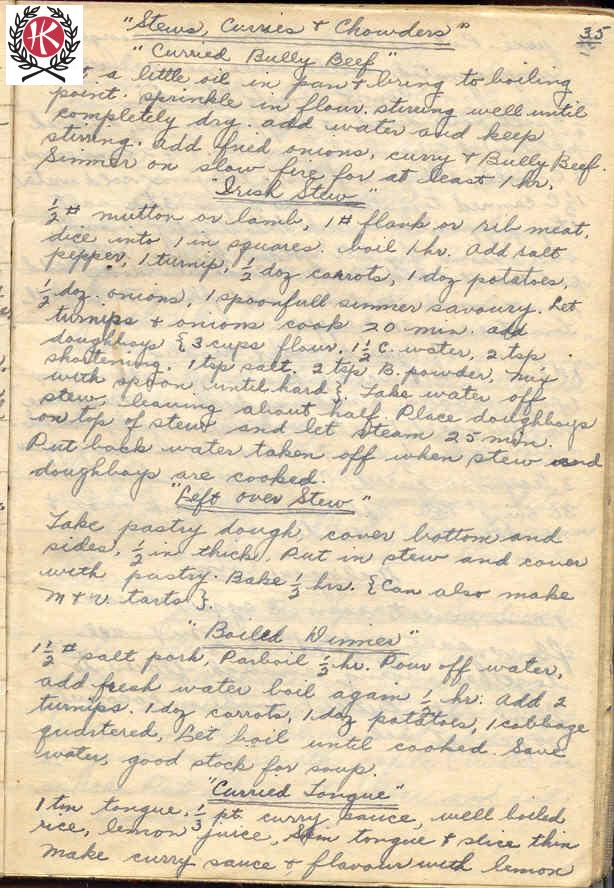 "Stews, Curries & Chowders"
35
"Curried Bully Beef"
a little oil in pan & bring to boiling
point. sprinkle in flour. stirring well until
completely dry. add water and keep
stirring. add fried onions, curry & Bully Beef.
Simmer on slow fire for at least 1 hr.
"Irish Stew"
1/2 # mutton or lamb, 1 # flank or rib meat,
dice into 1 in squares. boil 1 hr. Add salt
pepper, 1 turnip, 1/2 doz carrots, 1 doz potatoes,
1/2 doz. onions, 1 spoonfull simmer savoury. Let
turnips & onions cook 20 min. add
doughboys {3 cups flour, 1 1/2 C. water, 2 tsp
shortening. 1 tsp salt. 2 tsp B. powder, mix
with spoon until hard}. Take water off
stew, leaving about half. Place doughboys
on top of stew and let steam 25 min.
Put back water taken off when stew and
doughboys are cooked.
"Left over Stew"
Take pastry dough, cover bottom and
sides, 1/2 in thick. Put in stew and cover
with pastry. Bake 1/2 hrs. {Can also make
M & V. tarts}.
"Boiled Dinner"
1 1/2 # salt pork, Parboil 1/2 hr. Pour off water,
add fresh water boil again 1/2 hr. Add 2
turnips. 1 doz carrots, 1 doz potatoes, 1 cabbage
quartered, Let boil until cooked. Save
water, good stock for soup.
"Curried Tongue"
1 tin tongue, 1/3 pt. curry sauce, well boiled
rice, lemon juice, Skin tongue & slice thin
Make curry sauce & flavour with lemon